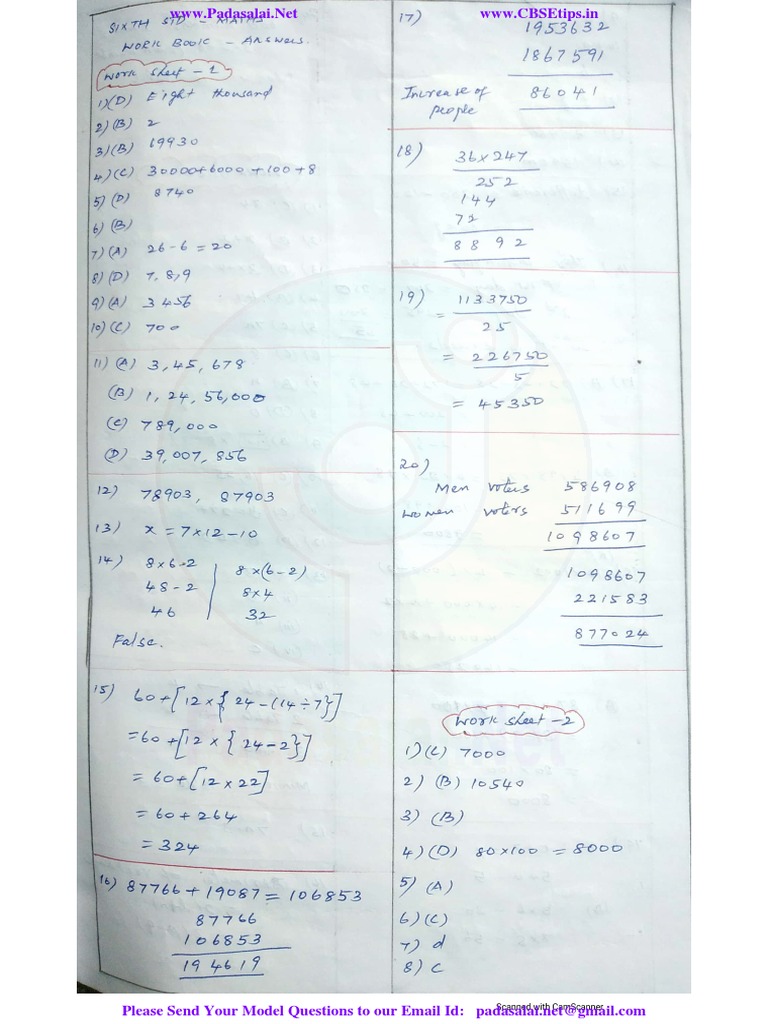 www.Padasalai.Net
www.CBSEtips.in
SIXTH STD - MATHS
WORK BOOK - Answers.
Work sheet - 1
1) (D) Eight thousand
2) (B) 2
3) (B) 19930
4) (C) 30000+6000+100+8
5) (D) 8740
6) (B)
7) (A) 26-6=20
8) (D) 7,8,9
9) (A) 3456
10) (C) 700
11) (A) 3,45,678
(B) 1,24,56,000
(C) 789,000
(D) 39,007,856
12) 78903, 87903
13) x = 7x12-10
14) 8x6-2 8x(6-2)
48-2 8x4
46 32
False.
15) 60+[12x{24-(14÷7}]
=60+[12x{24-2}]
= 60+[12x22]
= 60+264
= 324
16) 87766+19087=106853
87766
106853
194619
17) 1953632
1867591
Increase of people 86041
18) 36x247
252
144
72
8892
19) = 1133750
25
= 226750
5
= 45350
20)
Men voters 586908
women voters 511699
1098607
1098607
221583
877024
Work sheet -2
1) (C) 7000
2) (B) 10540
3) (B)
4) (D) 80x100 = 8000
5) (A)
6) (C)
7) d
8) C
Scanned with CamScanner
Please Send Your Model Questions to our Email Id: padasalai.net@gmail.com